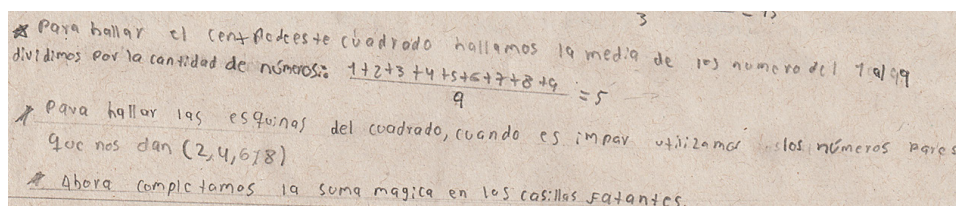 3 = 15
* Para hallar el centrodeeste cuadrado hallamos la media de los numero del 1 al 9 q
dividimos por la cantidad de números: 1+2+3+4+5+6+7+8+9 / 9 = 5
* Para hallar las esquinas del cuadrado, cuando es impar utilizamos los números pares
que nos dan (2,4,6,8)
* Ahora completamos la suma magica en las casillas fatantes.